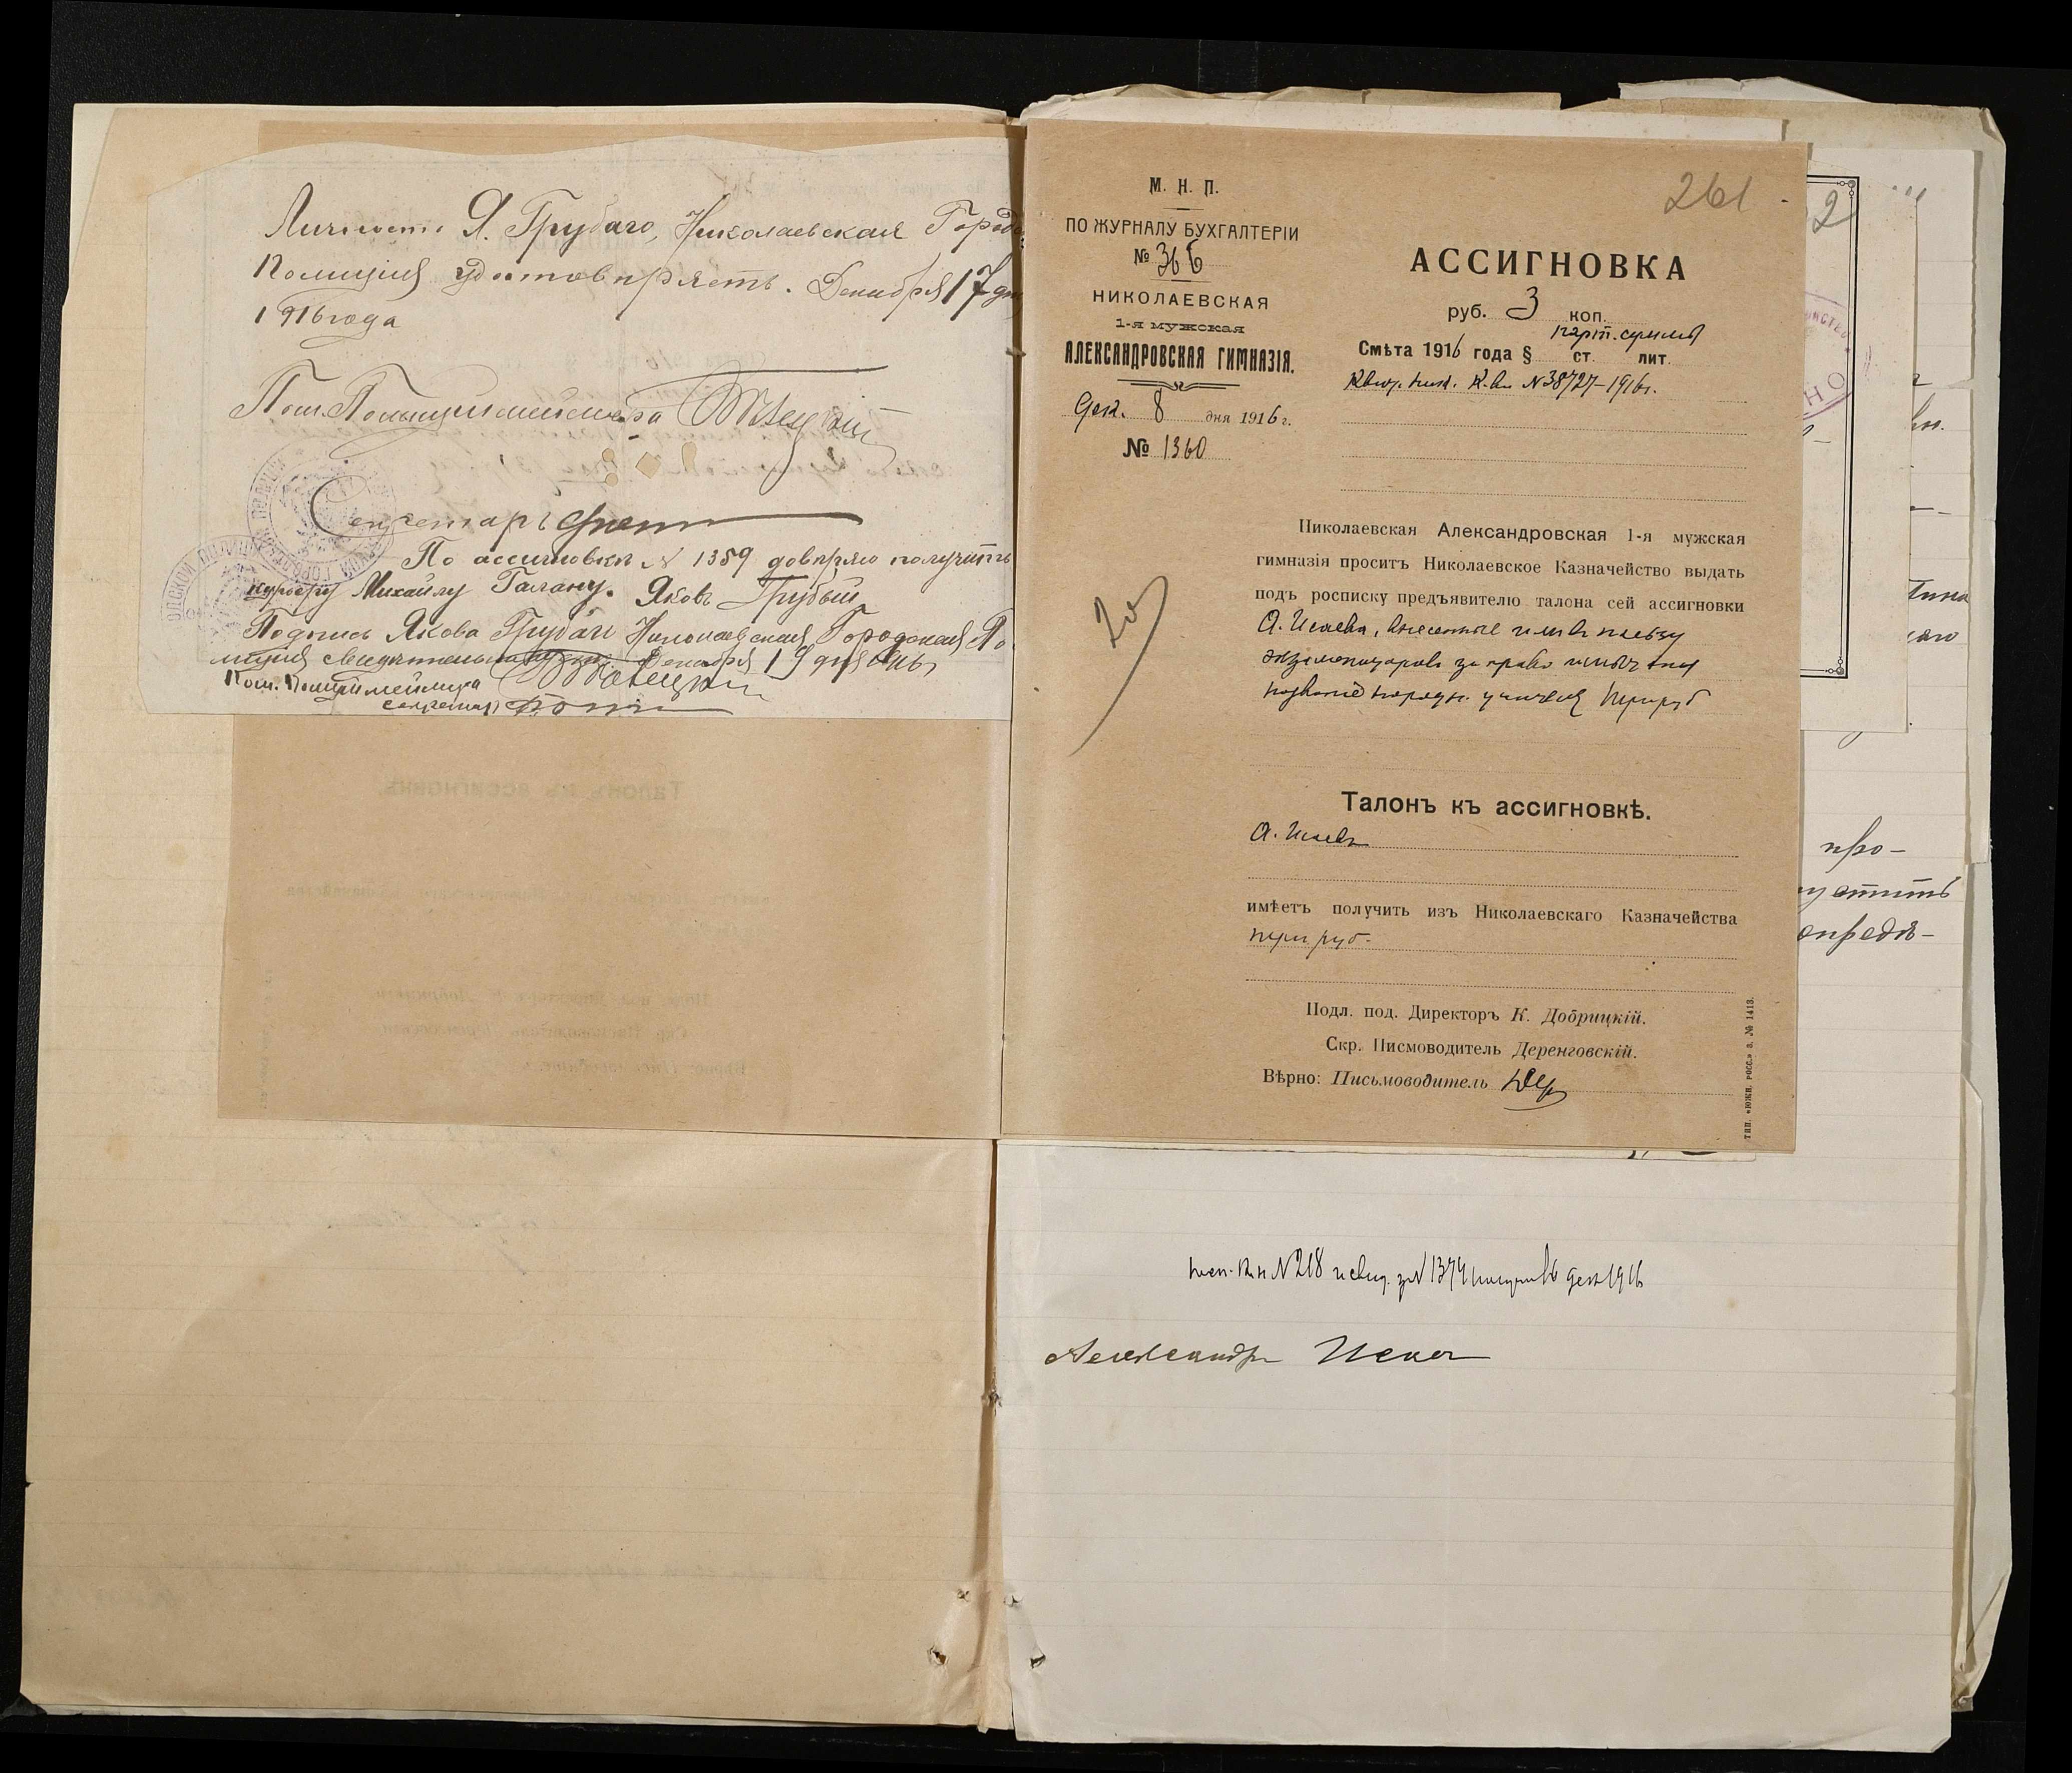 Личность Я. Грубаго, Николаевская Городс
Полиція удостовѣряетъ. Декабря 17 дня
1916 года
Пом. Полиціймейстера
Секретарь
По ассигновкѣ № 1359 довѣряю получить
курьеру Михаилу Галану. Яковъ Грубый
Подпись Якова Грубаго Николаевская Городская По-
лиція свидѣтельствуетъ. Декабря 19 дня 1916 г.
Пом. Полиціймейстера
Секретарь
261
М. Н. П.
ПО ЖУРНАЛУ БУХГАЛТЕРІИ
№ 366
НИКОЛАЕВСКАЯ
1-я мужская
АЛЕКСАНДРОВСКАЯ ГИМНАЗІЯ.
Дек. 8 дня 1916 г.
№ 1360
АССИГНОВКА
руб. 3 коп.
парт. суммы
Смѣта 1916 года § ст. лит.
Квит. Ник. К-ва № 38727–1916 г.
Николаевская Александровская 1-я мужская
гимназія проситъ Николаевское Казначейство выдать
подъ росписку предъявителю талона сей ассигновки
А. Исаева, внесенные имъ въ пользу
экзаменаторовъ за право
званіе народн. учителя три руб
Талонъ къ ассигновкѣ.
А. Исаевъ
имѣетъ получить изъ Николаевскаго Казначейства
три руб.
Подл. под. Директоръ К. Добрицкій.
Скр. Писмоводитель Деренговскій.
Вѣрно: Письмоводитель
ТИП. «ЮЖН. РОСС.» з. № 1413.
2
про-
устить
опредѣ-
№ 218 и свид. за № 1374 получилъ дек 1916
Александръ Исаев